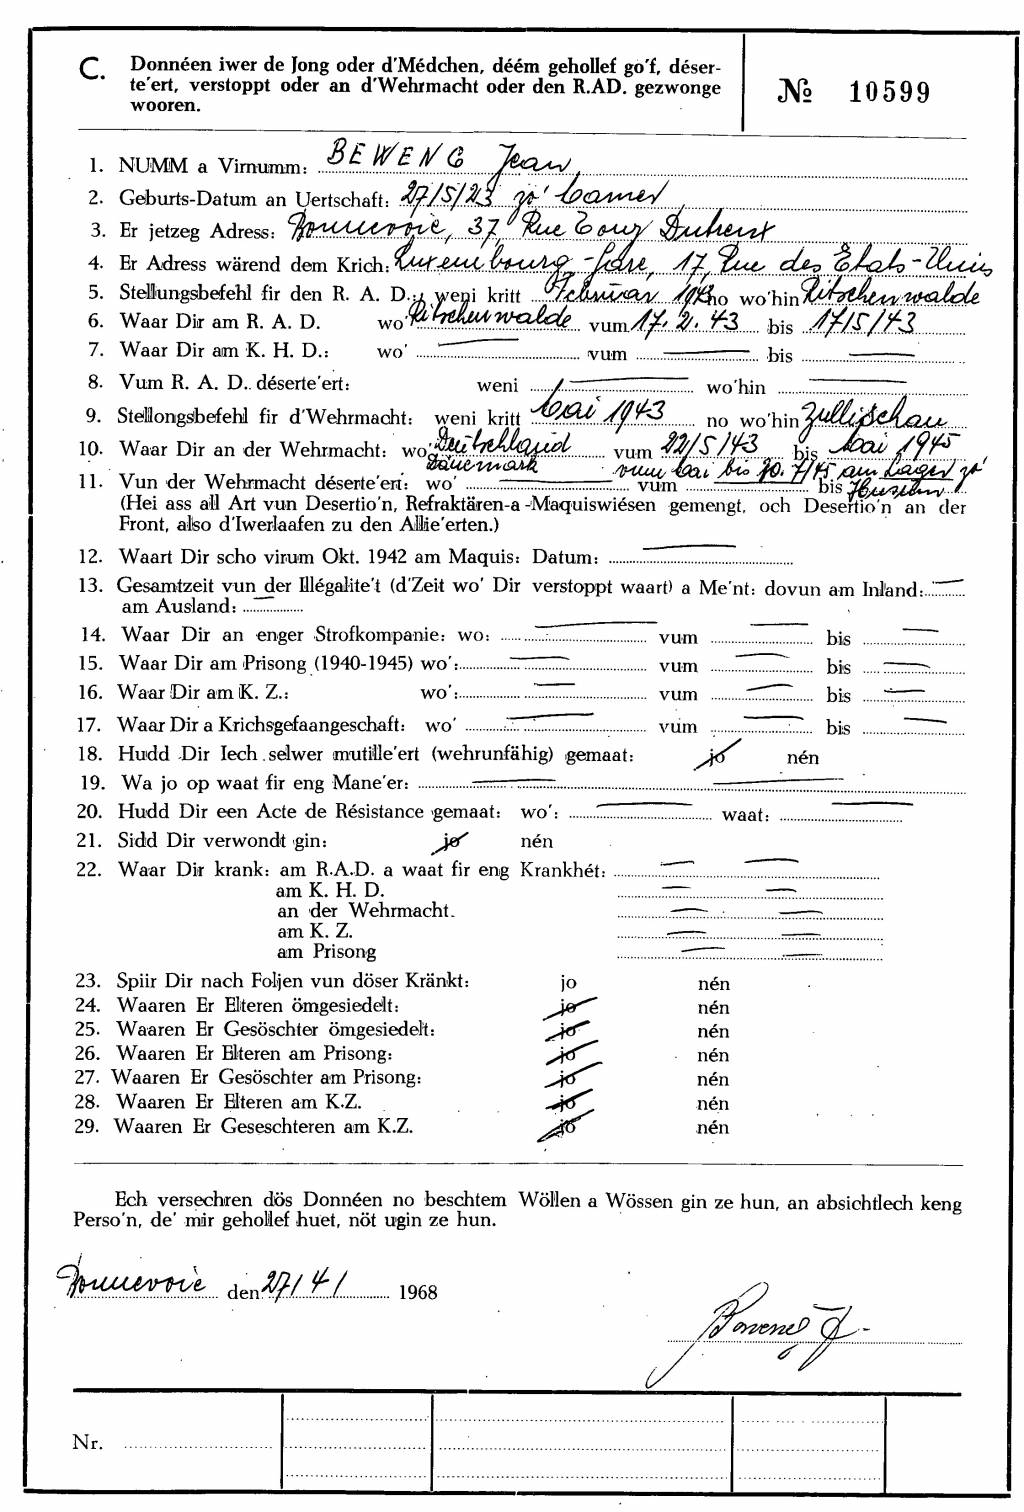 C. Donnéen iwer de Jong oder d'Médchen, déém gehollef go'f, déser-
te'ert, verstoppt oder an d'Wehrmacht oder den R.AD. gezwonge
wooren.
№ 10599
1. NUMM a Virnumm: BEWENG Jean
2. Geburts-Datum an Uertschaft: 27/5/23 zo'
3. Er jetzeg Adress: Bonnevoie, 37, Rue Dutreux
4. Er Adress wärend dem Krich: Luxembourg-Gare, 17, Rue des Etats-Unis
5. Stellungsbefehl fir den R. A. D.: weni kritt Februar 1943 no wo'hin Ritschenwalde
6. Waar Dir am R. A. D. wo' Ritschenwalde vum 17.2.43 bis 17/5/43
7. Waar Dir am K. H. D.: wo' — vum — bis —
8. Vum R. A. D. déserte'ert: weni — wo'hin —
9. Stellongsbefehl fir d'Wehrmacht: weni kritt Mai 1943 no wo'hin Züllischau
10. Waar Dir an der Wehrmacht: wo' Deutschland vum 22/5/43 bis Mai 1945
Dänemark vum Mai bis 30.7/45 am Lager zo'
11. Vun der Wehrmacht déserte'ert: wo' — vum — bis Husum
(Hei ass all Art vun Desertio'n, Refraktären-a -Maquiswiésen gemengt, och Desertio'n an der
Front, also d'Iwerlaafen zu den Allie'erten.)
12. Waart Dir scho virum Okt. 1942 am Maquis: Datum: —
13. Gesamtzeit vun der Illégalite't (d'Zeit wo' Dir verstoppt waart) a Me'nt: dovun am Inland: —
am Ausland: —
14. Waar Dir an enger Strofkompanie: wo: — vum — bis —
15. Waar Dir am Prisong (1940-1945) wo': — vum — bis —
16. Waar Dir am K. Z.: wo': — vum — bis —
17. Waar Dir a Krichsgefaangeschaft: wo' — vum — bis —
18. Hudd Dir Iech selwer mutille'ert (wehrunfähig) gemaat: jo nén
19. Wa jo op waat fir eng Mane'er: — —
20. Hudd Dir een Acte de Résistance gemaat: wo': — waat: —
21. Sidd Dir verwondt gin: jo nén
22. Waar Dir krank: am R.A.D. a waat fir eng Krankhét: — —
am K. H. D. — —
an der Wehrmacht. — —
am K. Z. — —
am Prisong — —
23. Spiir Dir nach Foljen vun döser Kränkt: jo nén
24. Waaren Er Elteren ömgesiedelt: jo nén
25. Waaren Er Gesöschter ömgesiedelt: jo nén
26. Waaren Er Elteren am Prisong: jo nén
27. Waaren Er Gesöschter am Prisong: jo nén
28. Waaren Er Elteren am K.Z. jo nén
29. Waaren Er Geseschteren am K.Z. jo nén
Ech versechren dös Donnéen no beschtem Wöllen a Wössen gin ze hun, an absichtlech keng
Perso'n, de' mir gehollef huet, nöt ugin ze hun.
Bonnevoie den 27/4/ 1968
Beweng J.
Nr.